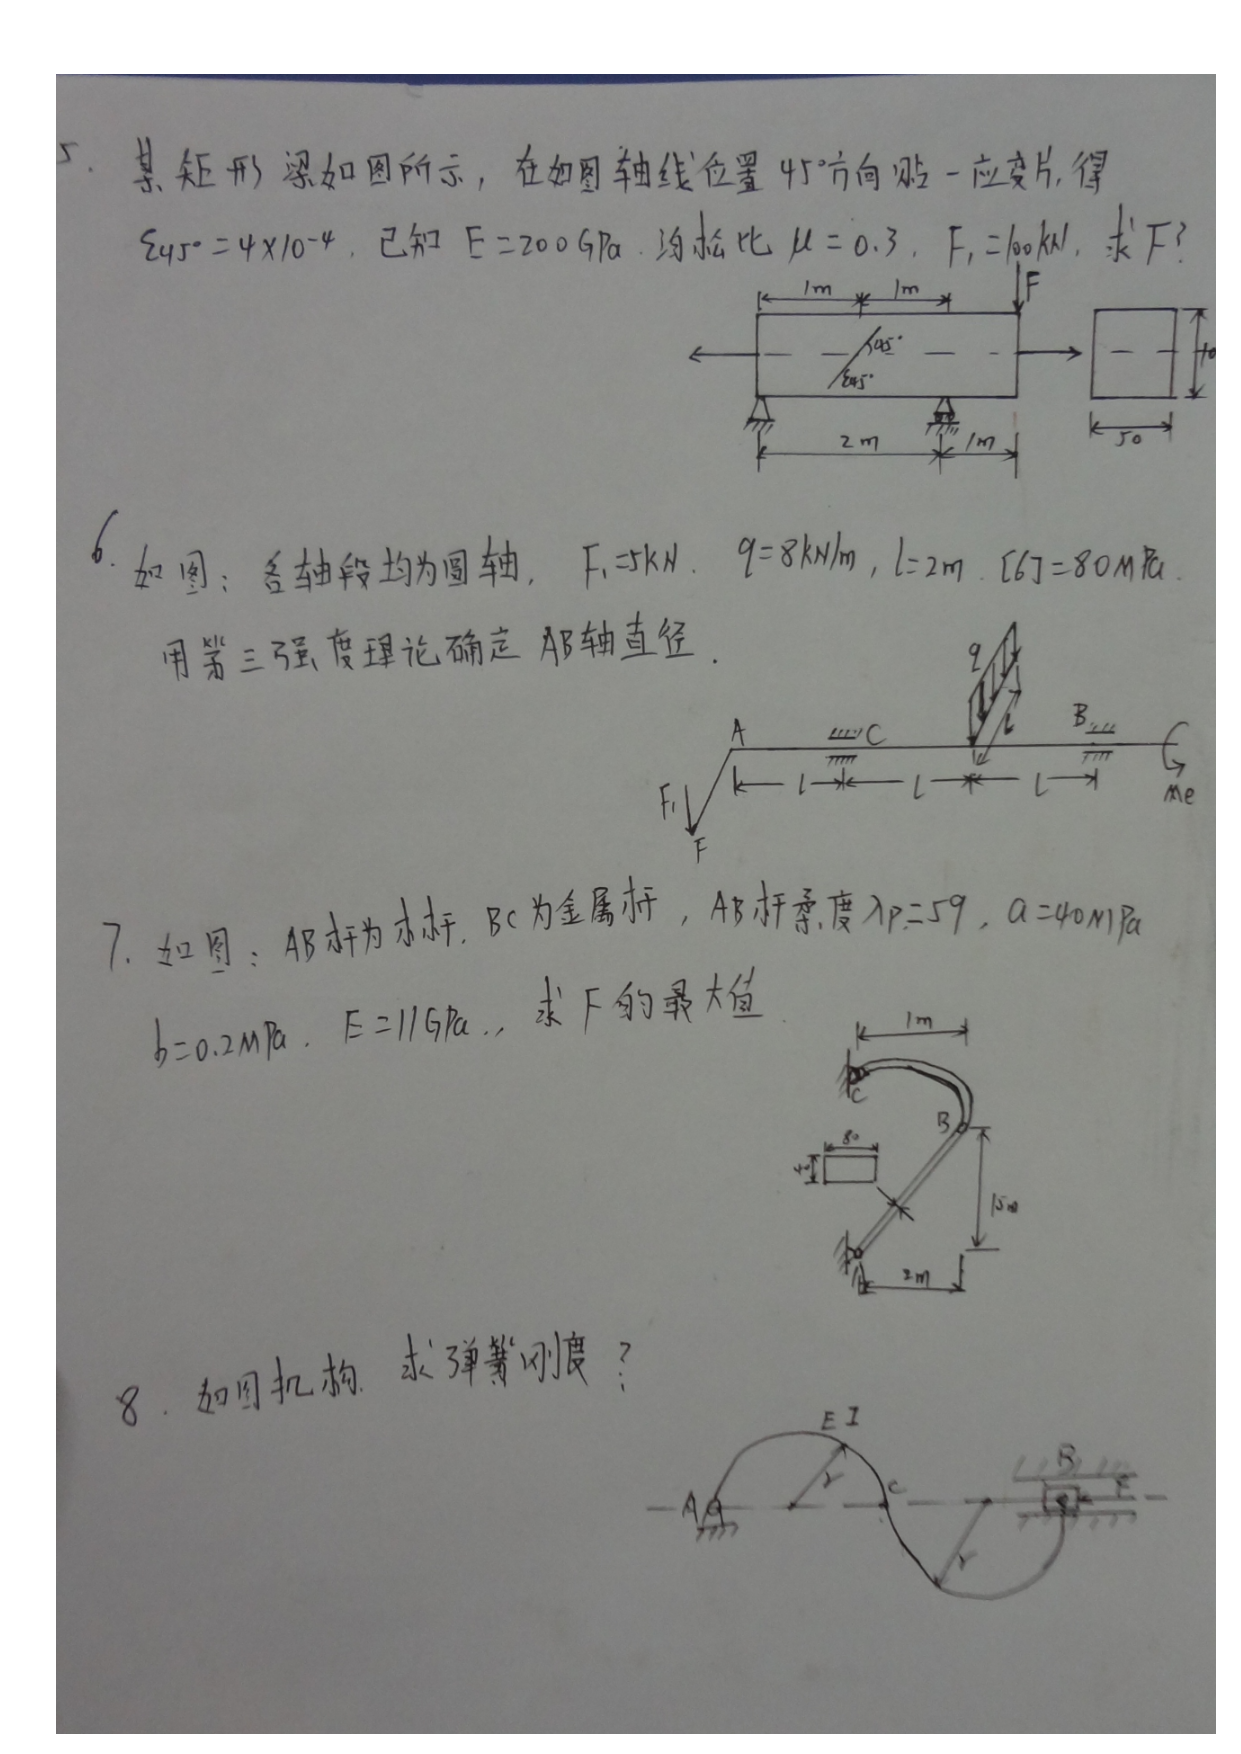 5. 某矩形梁如图所示，在如图轴线位置45°方向贴一应变片，得
ε45°=4×10-4. 已知 E=200GPa. 泊松比 μ=0.3. F1=100kN. 求F?
1m 1m F
45°
ε45°
50
2m 1m
6. 如图：各轴段均为圆轴. F1=5kN. q=8kN/m, l=2m. [б]=80MPa.
用第三强度理论确定AB轴直径.
q
A C l B
F1 l l l Me
F
7. 如图：AB杆为木杆. BC为金属杆, AB杆柔度λp=59. a=40MPa
b=0.2MPa. E=11GPa., 求F的最大值.
1m
C
B
80
40
2m
8. 如图机构. 求弹簧刚度?
EI
B
A r C F
r